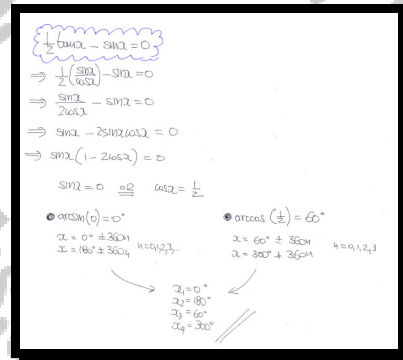 ½ tanx − sinx = 0
⇒ ½ (sinx/cosx) − sinx = 0
⇒ sinx/2cosx − sinx = 0
⇒ sinx − 2sinxcosx = 0
⇒ sinx (1 − 2cosx) = 0
sinx = 0 or cosx = ½
• arcsin(0) = 0°
x = 0° ± 360n
x = 180° ± 360n n=0,1,2,3..
• arccos (½) = 60°
x = 60° ± 360n
x = 300° ± 360n n=0,1,2,3
x₁ = 0°
x₂ = 180°
x₃ = 60°
x₄ = 300°